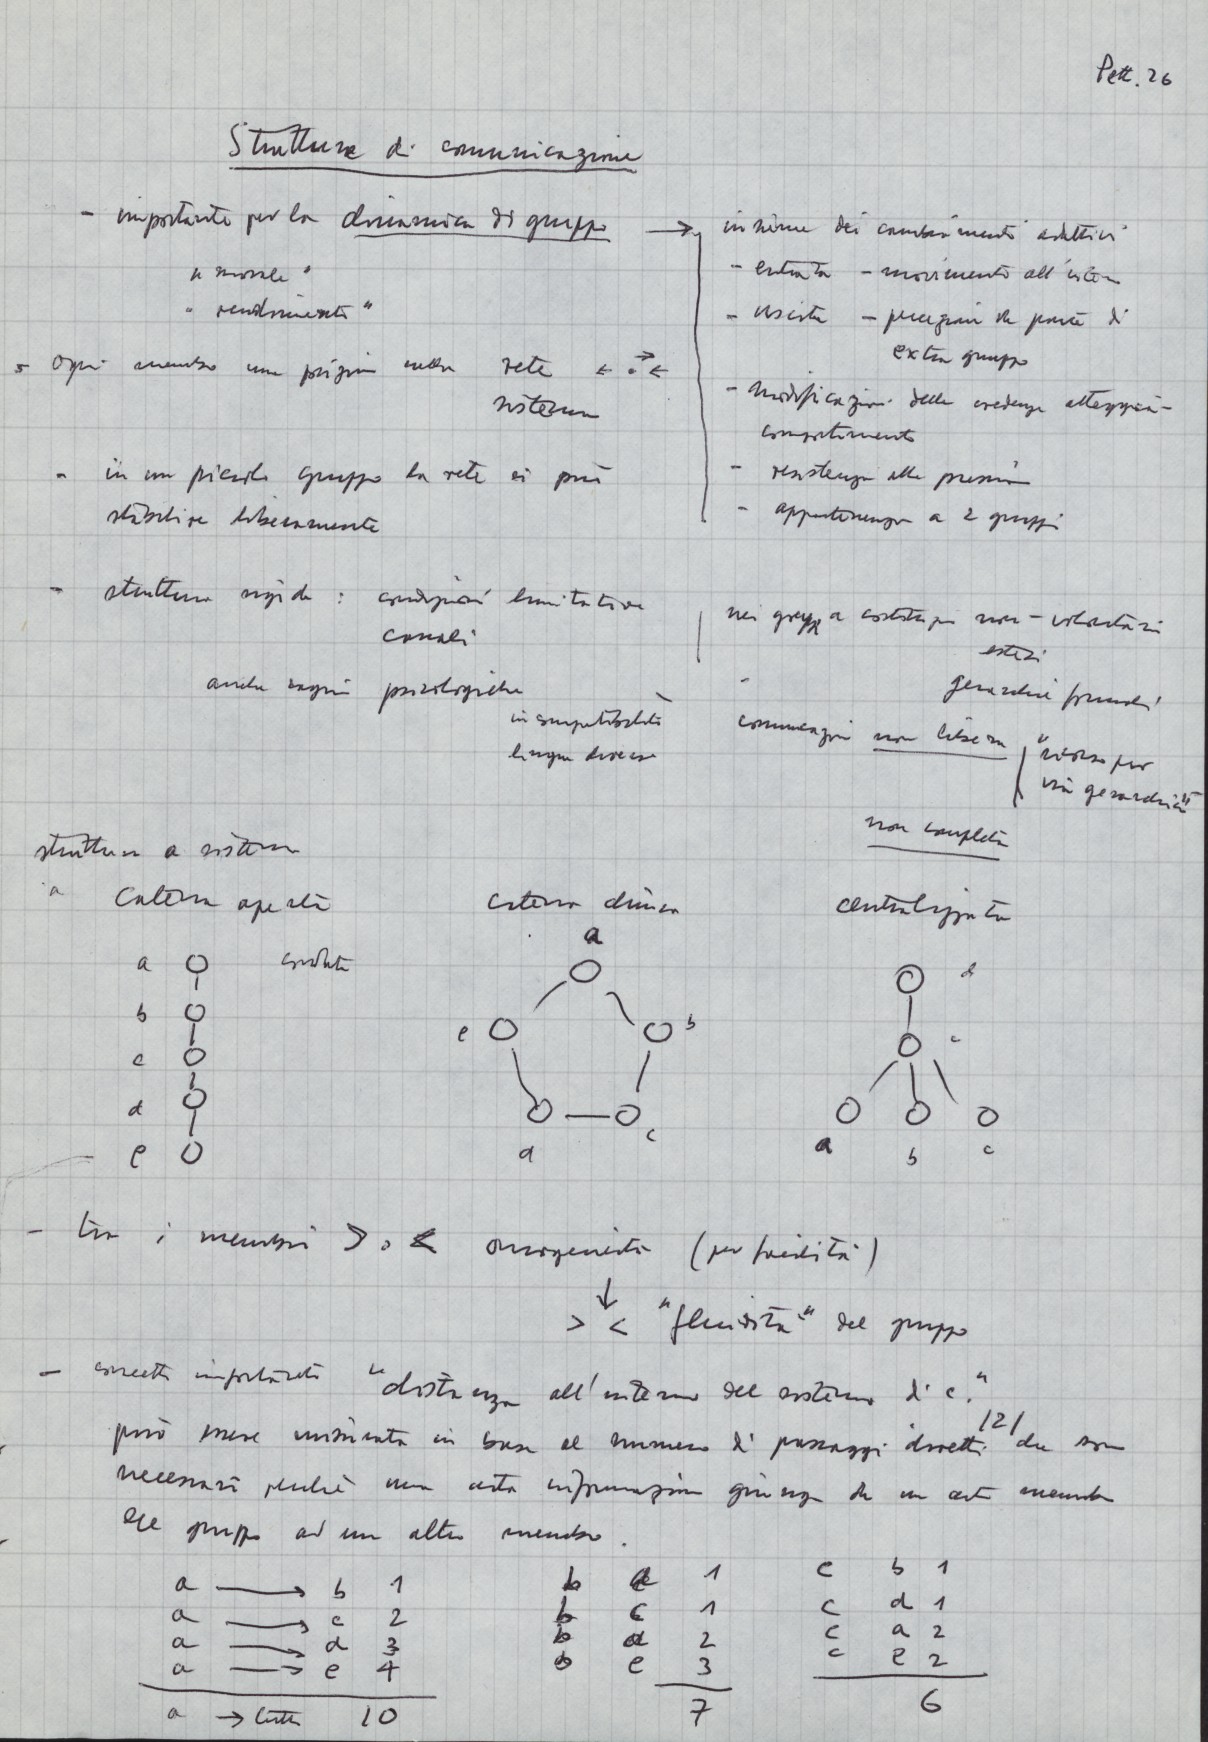 Pett. 26
Strutture di comunicazione
- importante per la dinamica di gruppo →
"morale"
"rendimento"
- ogni membro una posizione nella rete
sistema
- in un piccolo gruppo la rete si può
stabilire liberamente
- struttura rigida : condizioni limitative
canali
anche ragioni psicologiche
incompatibilità
lingue diverse
insieme dei cambiamenti adattivi
- entrata - movimento all'esterno
- uscita - da parte di
extra gruppo
- modificazioni delle credenze
comportamento
- resistenza alle pressioni
- appartenenza a 2 gruppi
nei gruppi a non-volontari
estesi
gerarchie formali
comunicazioni non libera
"inoltro per
via gerarchica"
non completa
struttura a sistema
a catena aperta
catena chiusa
centralizzata
a
b
c
d
e
a
e b
d c
d
c
a b c
- tra i membri > o < omogeneità (per facilità)
↓
> < "fluidità" del gruppo
- concetto importante "distanza all'interno del sistema di c."
può essere misurata in base al numero di passaggi diretti /2/ che sono
necessari perché una certa informazione giunga da un certo membro
del gruppo ad un altro membro.
a → b 1 b a 1 c b 1
a → c 2 b c 1 c d 1
a → d 3 b d 2 c a 2
a → e 4 b e 3 c e 2
a → tutti 10 7 6